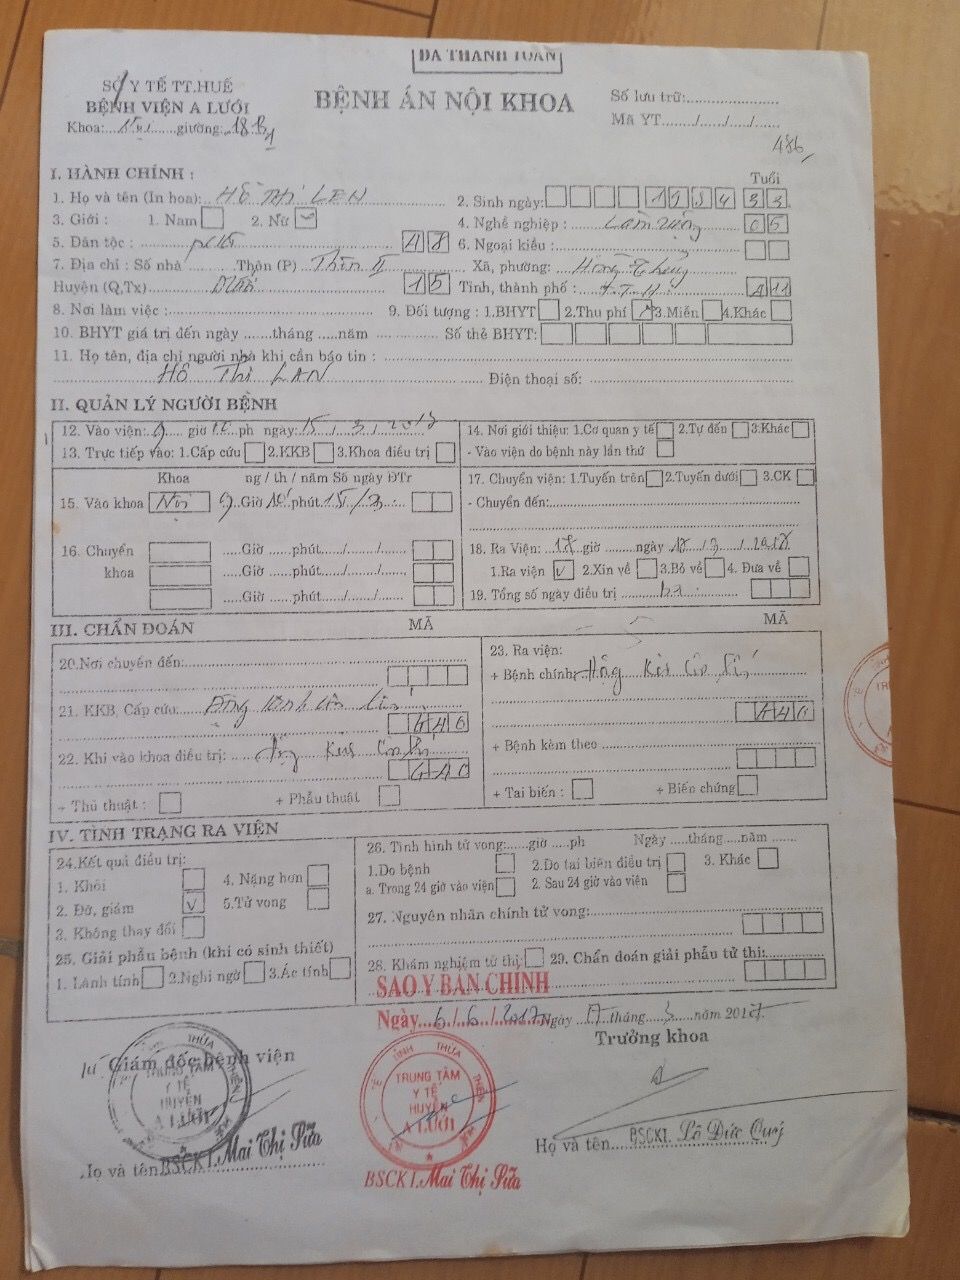 ĐÃ THANH TOÁN
SỞ Y TẾ TT.HUẾ
BỆNH VIỆN A LƯỚI
Khoa:...Nội......giường:..18B1
BỆNH ÁN NỘI KHOA
Số lưu trữ:......................
Mã YT ....../....../....../......
486
I. HÀNH CHÍNH :
Tuổi
1. Họ và tên (In hoa): HỒ THỊ LEN
2. Sinh ngày: 1984 33
3. Giới : 1. Nam 2. Nữ
4. Nghề nghiệp : Làm ruộng 05
5. Dân tộc :
6. Ngoại kiều:
7. Địa chỉ : Số nhà ........Thôn (P) Thôn II
Xã, phường: Hồng Thủy
Huyện (Q,Tx) 15
Tỉnh, thành phố : T.T.H A11
8. Nơi làm việc:
9. Đối tượng : 1.BHYT 2.Thu phí 3.Miễn 4.Khác
10. BHYT giá trị đến ngày ......tháng ...năm
Số thẻ BHYT:
11. Họ tên, địa chỉ người nhà khi cần báo tin :
HỒ THỊ LAN
Điện thoại số:
II. QUẢN LÝ NGƯỜI BỆNH
12. Vào viện: 9 giờ 10 ph ngày: 15 / 3 / 2017
14. Nơi giới thiệu: 1.Cơ quan y tế 2.Tự đến 3.Khác
13. Trực tiếp vào: 1.Cấp cứu 2.KKB 3.Khoa điều trị
- Vào viện do bệnh này lần thứ
Khoa ng / th / năm Số ngày ĐTr
17. Chuyển viện: 1.Tuyến trên 2.Tuyến dưới 3.CK
15. Vào khoa Nội 9 Giờ 10 phút 15/3
- Chuyển đến:
16. Chuyển .....Giờ .....phút....../....../......
18. Ra Viện: 17 giờ ........ngày 17 / 3 / 2017
khoa .....Giờ .....phút....../....../......
1.Ra viện v 2.Xin về 3.Bỏ về 4. Đưa về
.....Giờ .....phút....../....../......
19. Tổng số ngày điều trị ba
III. CHẨN ĐOÁN
MÃ
MÃ
20.Nơi chuyển đến:
23. Ra viện:
+ Bệnh chính: Động kinh cơn lớn
21. KKB, Cấp cứu: Động kinh cơn lớn
G40
G40
22. Khi vào khoa điều trị: Động kinh cơn lớn
+ Bệnh kèm theo
G40
+ Thủ thuật : + Phẫu thuật
+ Tai biến : + Biến chứng
IV. TÌNH TRẠNG RA VIỆN
24.Kết quả điều trị:
26. Tình hình tử vong:......giờ ....ph Ngày ....tháng.....năm
1. Khỏi 4. Nặng hơn
1.Do bệnh 2.Do tai biến điều trị 3. Khác
2. Đỡ, giảm v 5.Tử vong
a. Trong 24 giờ vào viện 2. Sau 24 giờ vào viện
3. Không thay đổi
27. Nguyên nhân chính tử vong:
25. Giải phẫu bệnh (khi có sinh thiết)
1. Lành tính 2.Nghi ngờ 3.Ác tính
28. Khám nghiệm tử thi: 29. Chẩn đoán giải phẫu tử thi:
SAO Y BẢN CHÍNH
Ngày....6/...6/...2017
Ngày 17 tháng 3 năm 2017
Trưởng khoa
Giám đốc bệnh viện
TỈNH THỪA THIÊN
TRUNG TÂM
Y TẾ
HUYỆN
A LƯỚI
TRUNG TÂM
Y TẾ
HUYỆN
A LƯỚI
Họ và tên BSCKI. Mai Thị Sửa
BSCKI. Mai Thị Sửa
Họ và tên BSCKI. Lê Đức Quý